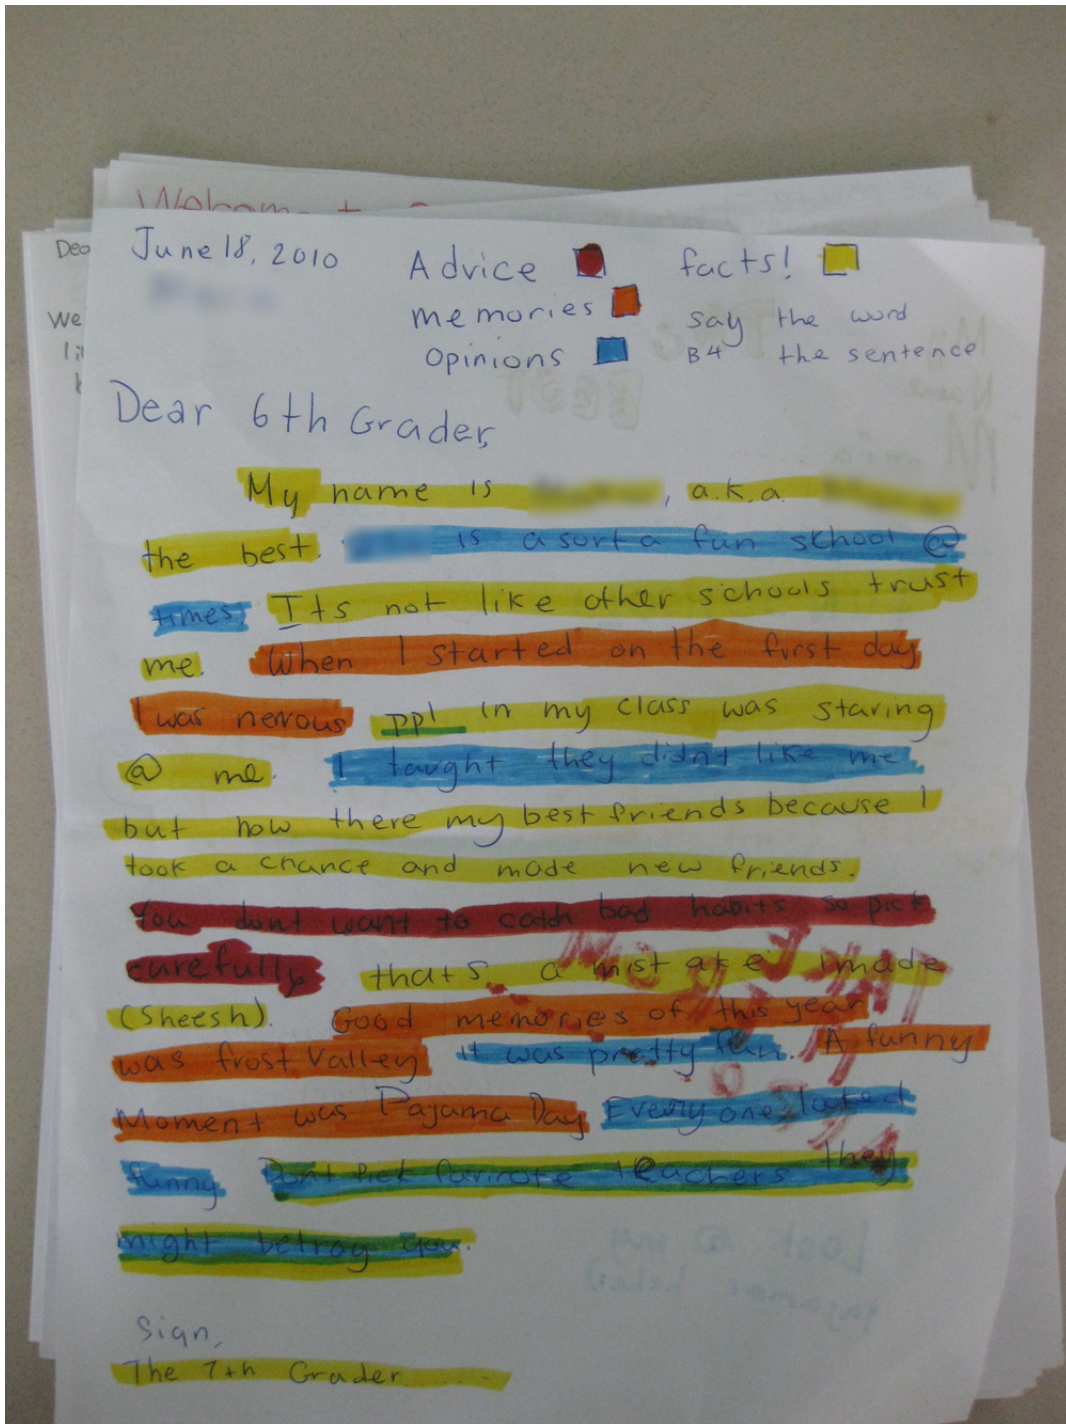 Welcome
Dea
June 18, 2010
Advice
facts!
memories
say the word
We
opinions
B4 the sentence
Dear 6th Grader,
My name is , a.k.a.
the best. is a sorta fun school @
times. Its not like other schools trust
me. When I started on the first day
I was nervous ppl in my class was staring
@ me. I taught they didnt like me
but now there my best friends because I
took a chance and made new friends.
You dont want to catch bad habits so pick
carefully thats a mistake I made
(Sheesh). Good memories of this year
was frost Valley it was pretty fun. A funny
Moment was Pajama Day Everyone looked
funny Dont Pick favirote teachers they
might betray you.
Sign,
The 7th Grader......